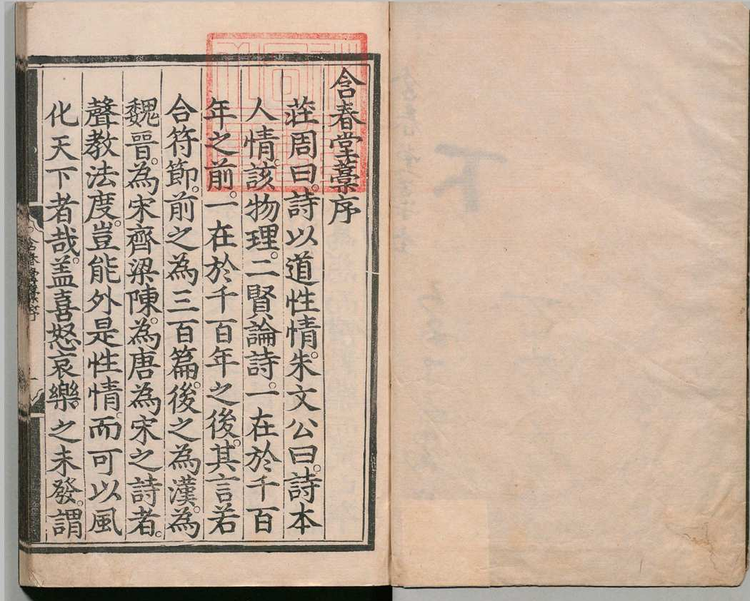 含春堂藁序
莊周曰。詩以道性情。朱文公曰。詩本
人情。該物理。二賢論詩。一在於千百
年之前。一在於千百年之後。其言若
合符節。前之為三百篇。後之為漢。為
魏晉。為宋齊梁陳。為唐為宋之詩者。
聲教法度。豈能外是性情。而可以風
化天下者哉。盖喜怒哀樂。之未發。謂
含春堂藁序
下